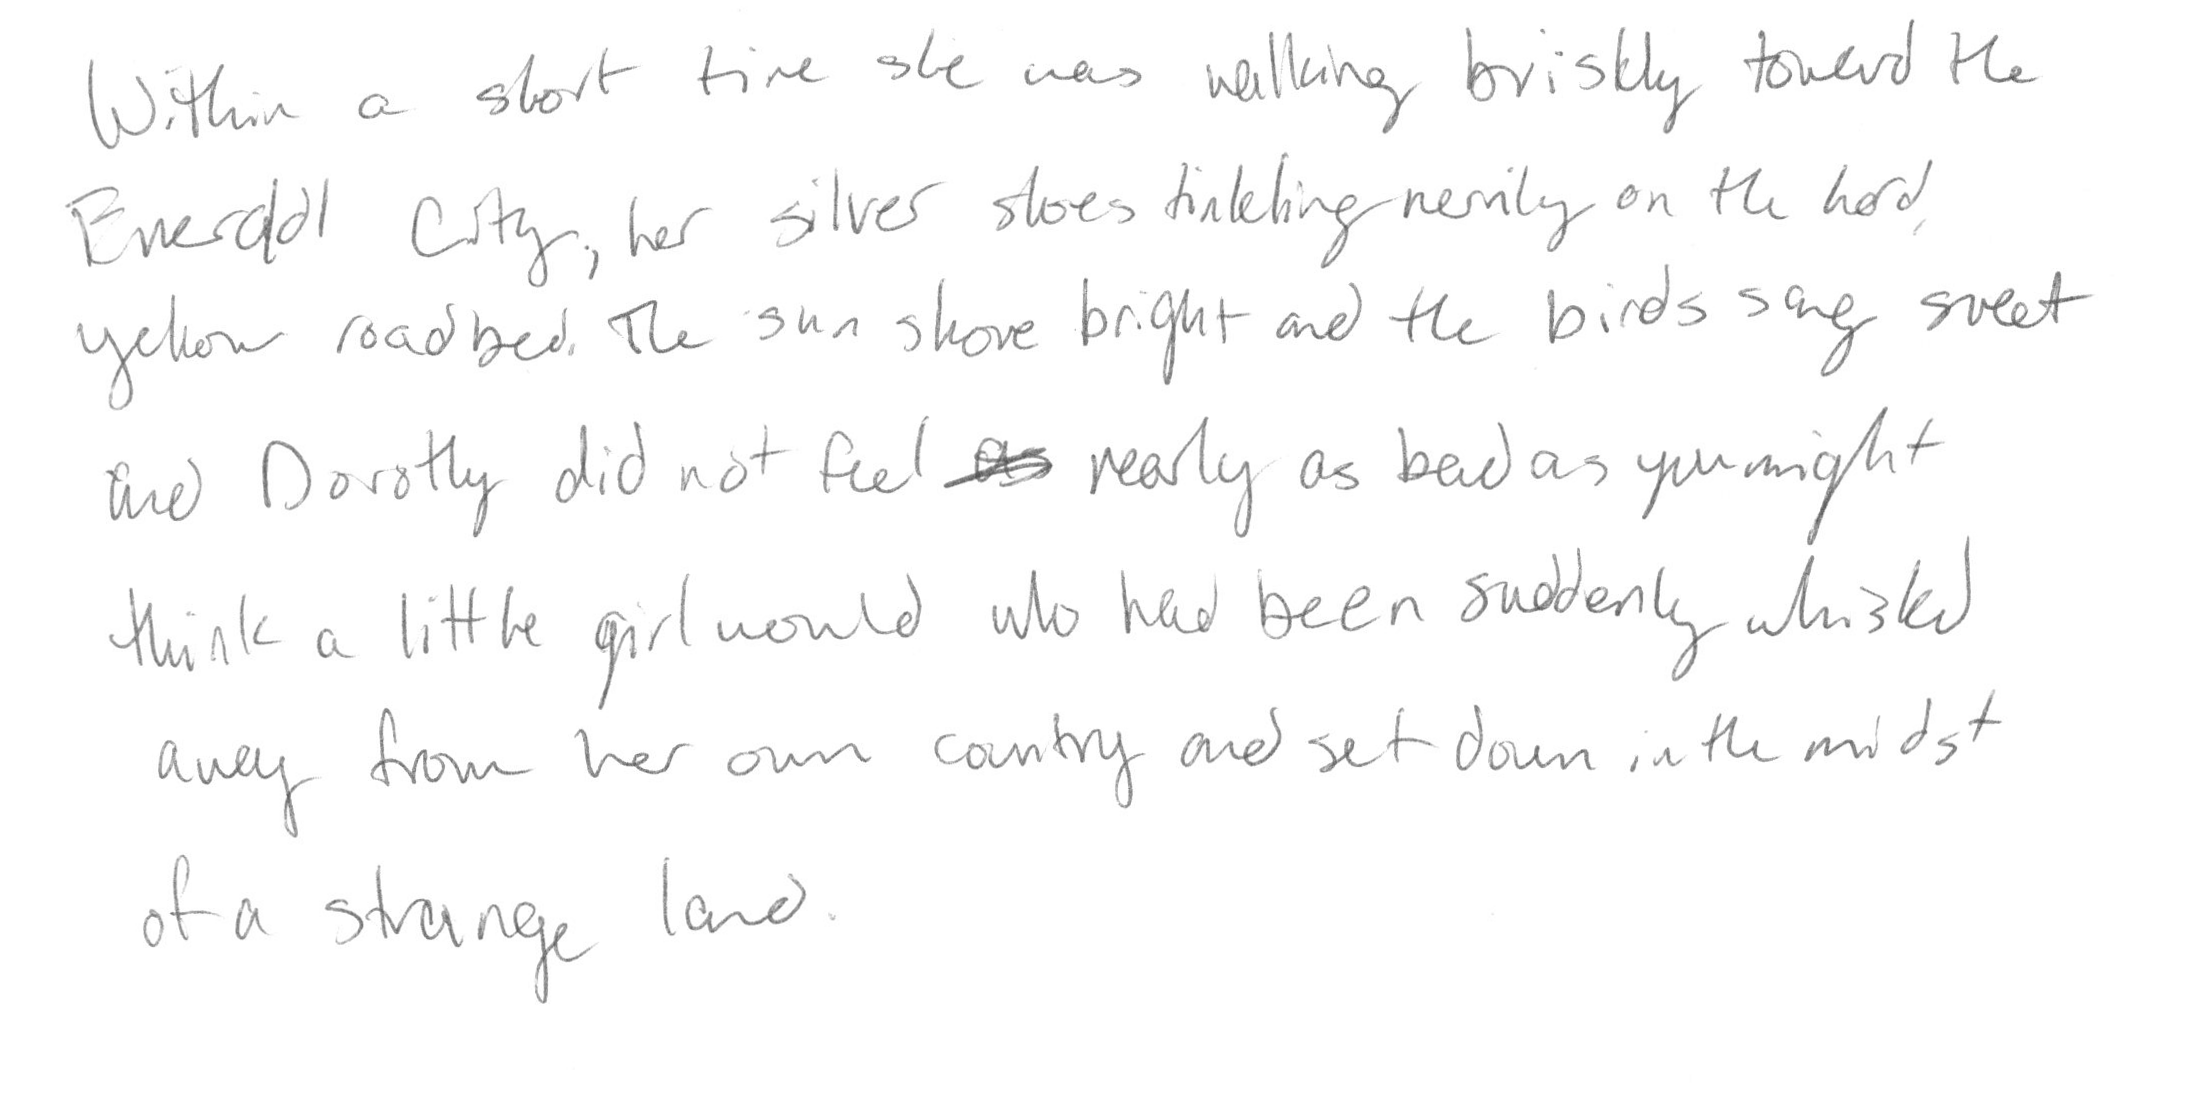 Within a short time she was walking briskly toward the
Emerald City, her silver shoes tinkling merrily on the hard,
yellow roadbed. The sun shone bright and the birds sang sweet
and Dorothy did not feel nearly as bad as you might
think a little girl would who had been suddenly whisked
away from her own country and set down in the midst
of a strange land.